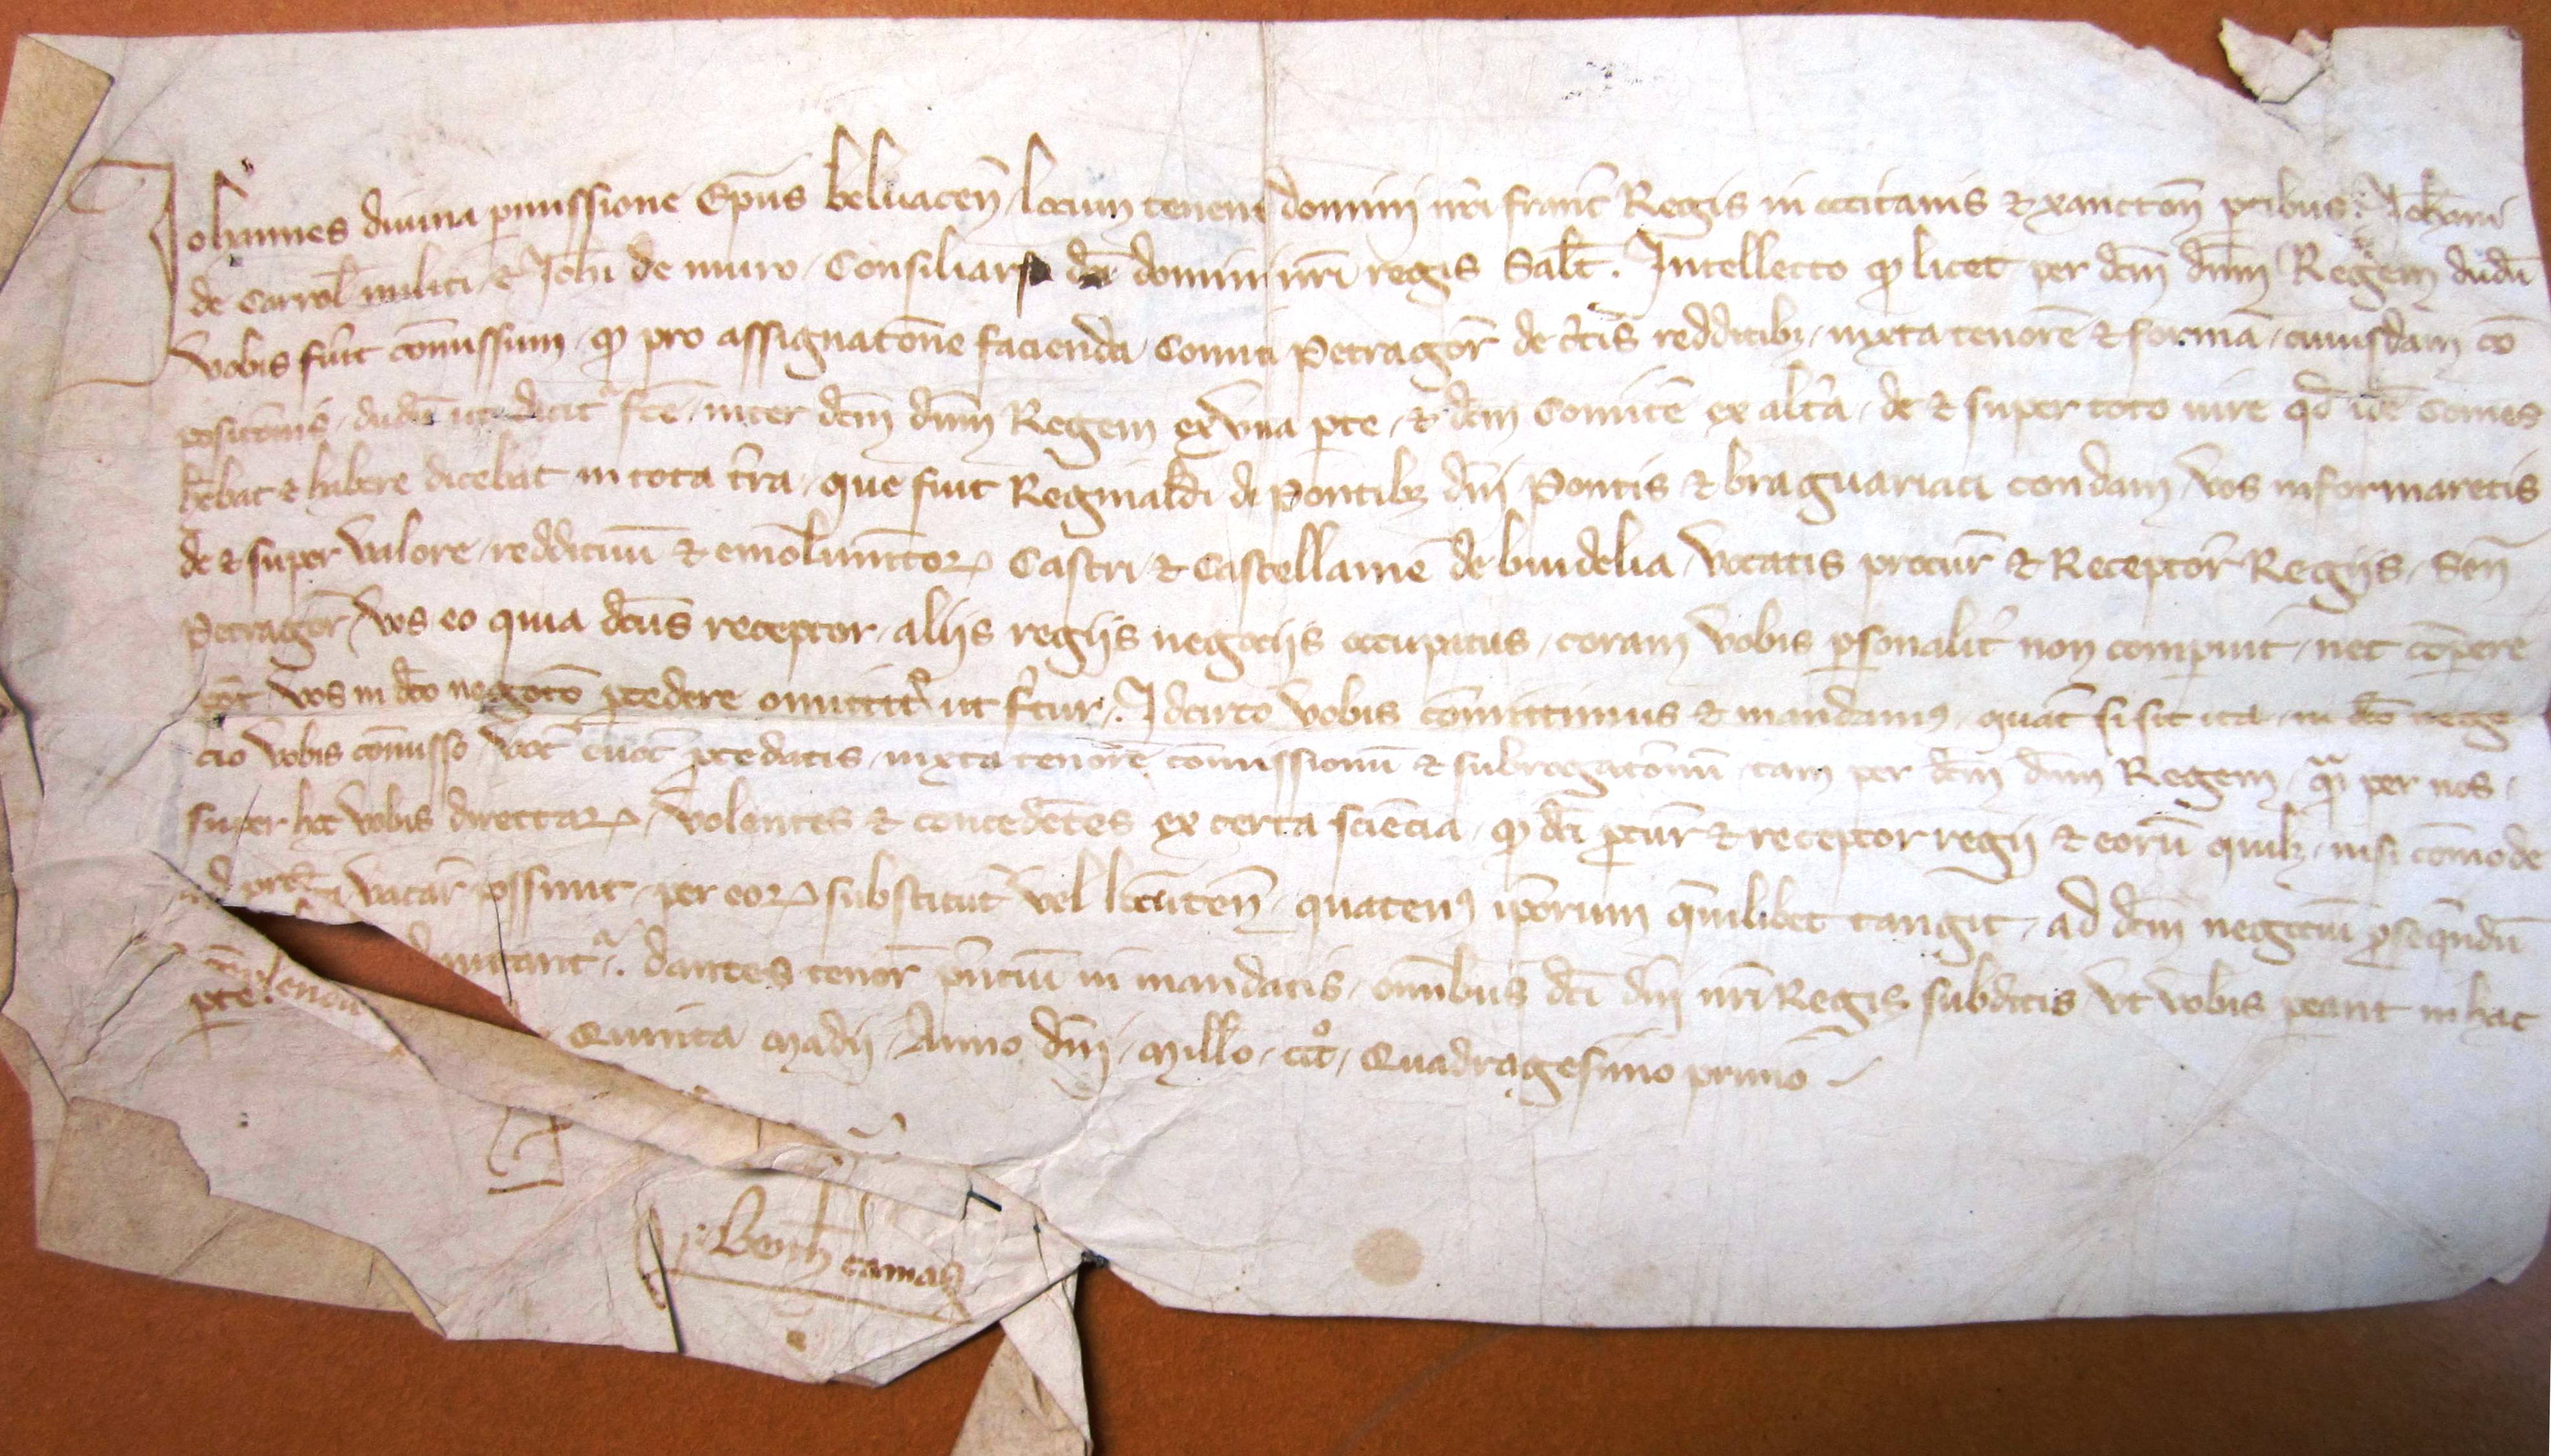 Johannes divina pmissione Ep̄us belvaceñ locum tenens domini nr̄i franc̄ Regis in occitanis & xancton̄ ptibus Joh̄ani
de Carrol̄ militi & Joh̄i de muro Consiliar dc̄i domini nr̄i regis Salt̄. Intellecto ꝙ licet per dc̄m dn̄m Regem dudū
vobis fūit cōmissum ꝙ pro assignatōne facienda Comiti Petragor̄ de c̄tis redditibꝫ iuxta tenorē & formā cuiusdam cō
positōnis dudū ut dicit᷑ fcē inter dc̄m dn̄m Regem ex una pte & dc̄m Comitē ex alt̄a de & super toto iure qd̄ idē Comes
hēbat & habere dicebat in tota t̄ra que fuit Reginaldi de Pontibꝫ dn̄i Pontis & braguariaci condam vos informaretis
de & super valore reddituū & emolumtoꝝ Castri & Castellanie de vocatis procur̄ & Receptor̄ Regiis Sen̄
Petragor̄ vos eo quia dc̄us receptor aliis regiis negociis occupatus coram vobis psonalit̄ non compuit nec cōpere
pōt vos in dc̄o negocō pcedere omittit᷑ ut fertur Idcirco vobis cōmittimus & mandamꝰ quat̄ si sit ita in dc̄o nego
cio vobis cōmisso voc̄ evoc̄ pcedatis iuxta tenorē cōmissionū & subrogatōnū tam per dc̄m dn̄m Regem qᵃm per nos
super hoc vobis directaꝝ volentes & concedētes ex certa sciēcia ꝙ dc̄i pcur̄ & receptor regii & eorū quilꝫ nisi cōmode
ad vacar̄ possunt per eoꝝ substitut̄ vel locūten̄ quatenꝰ ip̄orum quēlibet tangit ad dc̄m negociū psequēdū
dantes tenor̄ p̄nciū in mandatis om̄ibus dc̄i dn̄i nr̄i Regis subditis ut vobis peant in hac
pte Quinta madii Anno dn̄i Mill̄o ccc̊ Quadragesimo primo